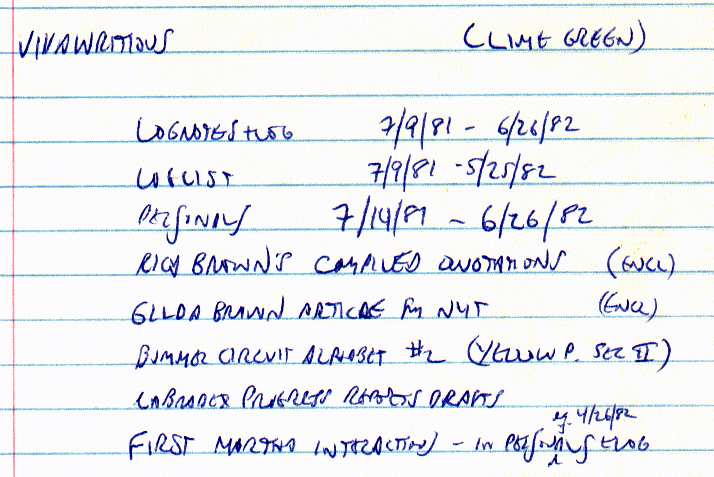 VIVAWRITIOUS (LIME GREEN)
LOGNOTES + LOG 7/9/81 - 6/26/82
LOGLIST 7/9/81 - 5/25/82
PERSONALS 7/14/81 - 6/26/82
RICH BROWN'S COMPILED QUOTATIONS (ENCL)
GILDA BROWN ARTICLE FM NYT (ENCL)
BUMMER CIRCUIT ALPHABET #2 (YELLOW P. SEC II)
LABRADOR PROGRESS REPORTS DRAFTS
eg. 4/26/82
FIRST MARTHA INTERACTIONS - IN PERSONALS + LOG